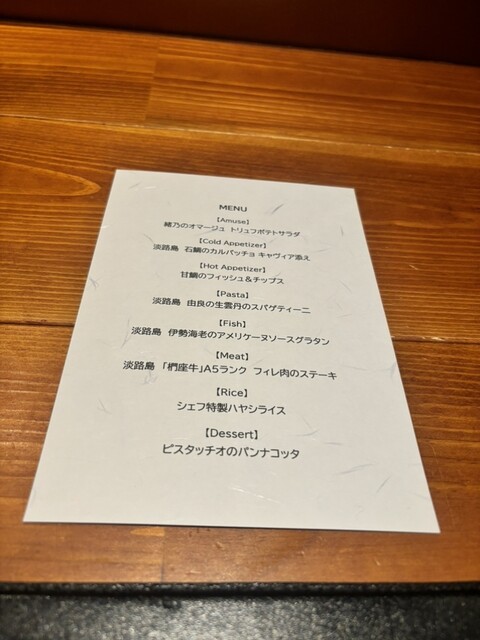 MENU
【Amuse】
緒乃のオマージュ トリュフポテトサラダ
【Cold Appetizer】
淡路島 石鯛のカルパッチョ キャヴィア添え
【Hot Appetizer】
甘鯛のフィッシュ&チップス
【Pasta】
淡路島 由良の生雲丹のスパゲティーニ
【Fish】
淡路島 伊勢海老のアメリケーヌソースグラタン
【Meat】
淡路島 「椚座牛」A5ランク フィレ肉のステーキ
【Rice】
シェフ特製ハヤシライス
【Dessert】
ピスタッチオのパンナコッタ